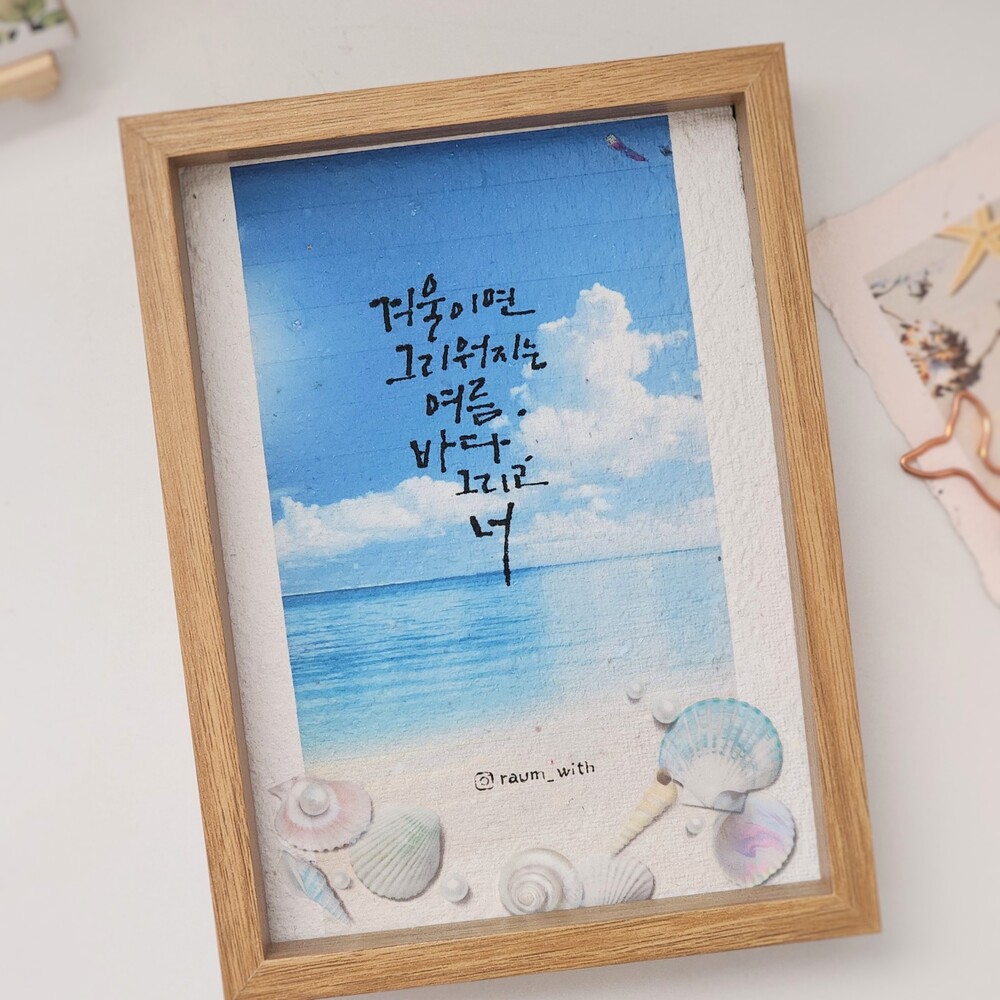 겨울이면
그리워지는
여름.
바다
그리고
너
raum_with